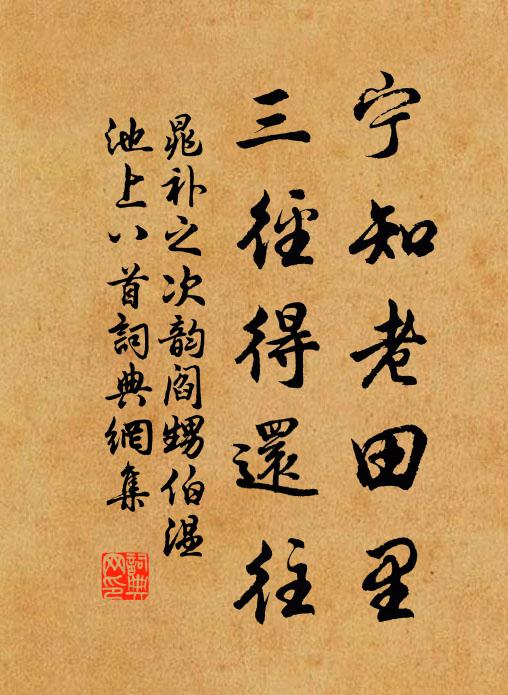 宁知老田里
三径得還往
晁补之次韵阎甥伯温
池上八首詞典網集
詞典
网印